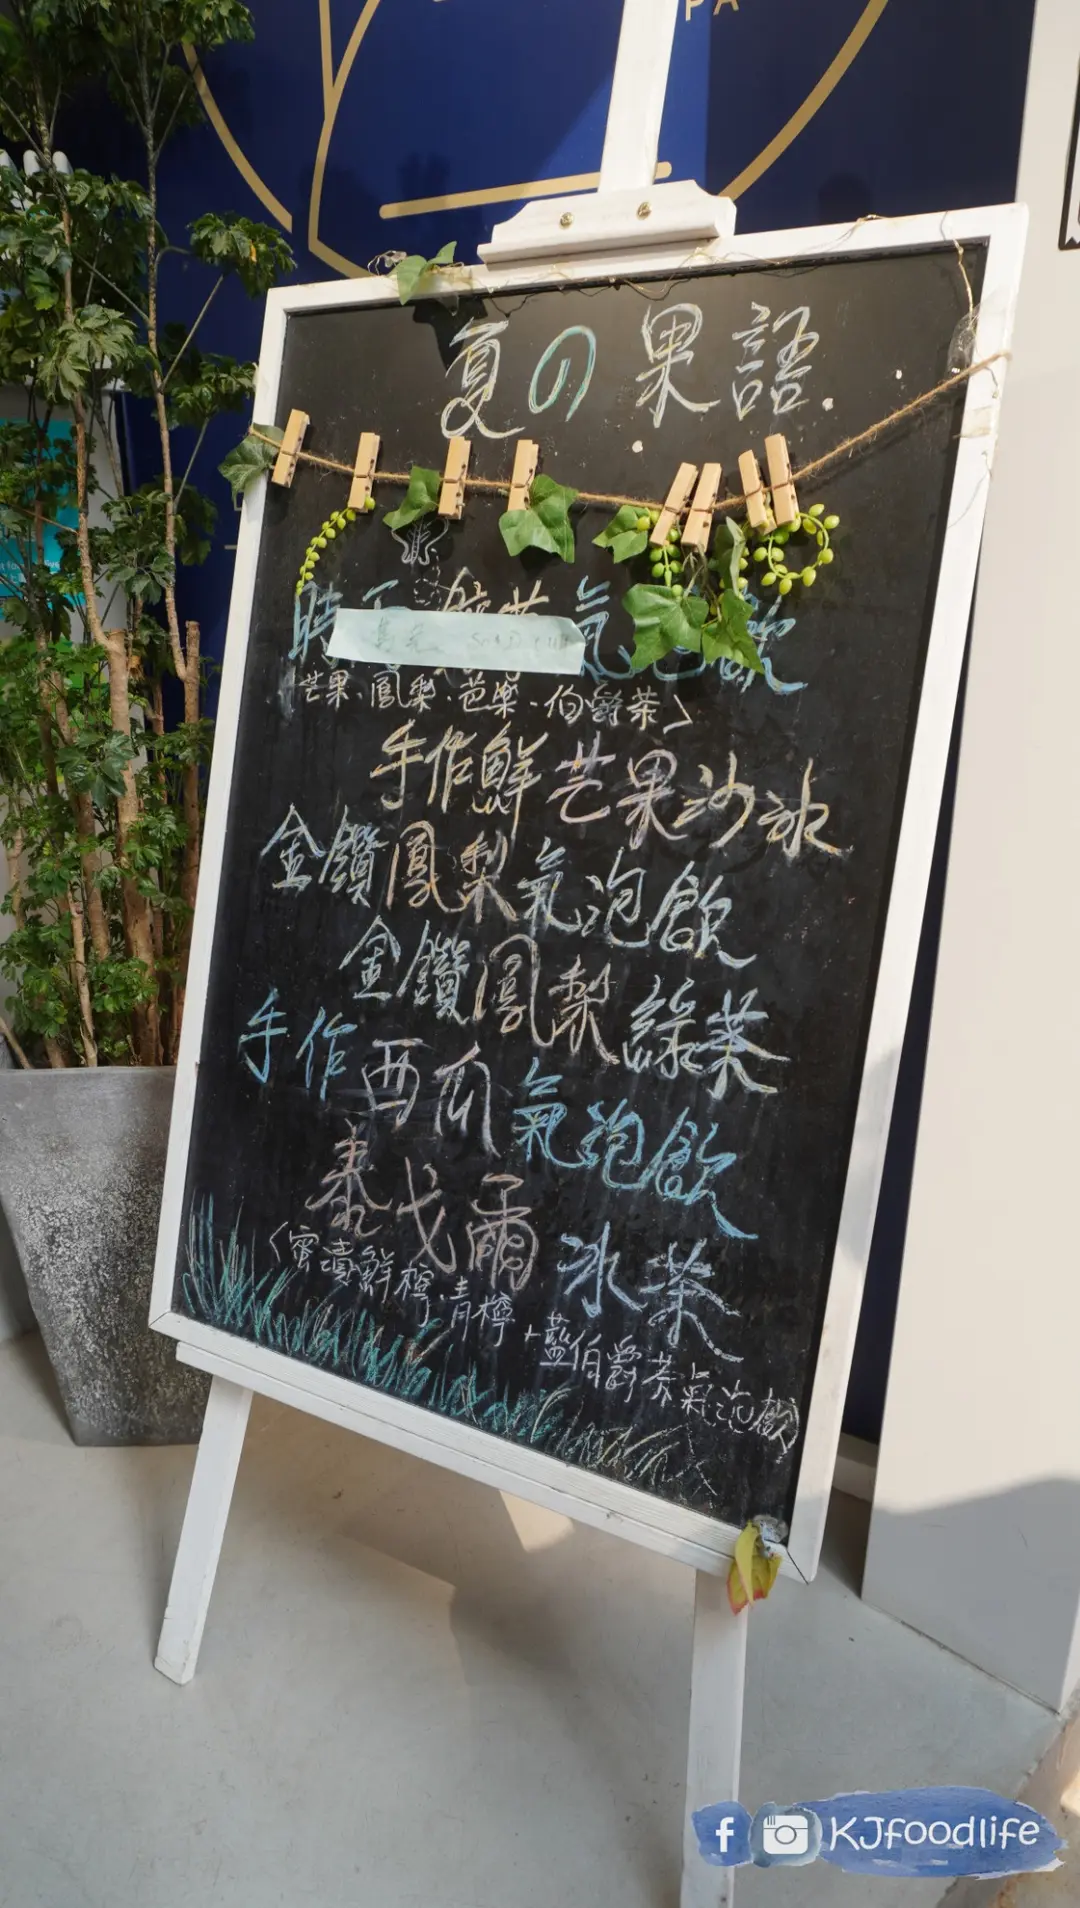 PA
夏の果語
氣泡飲
芒果、鳳梨、芭樂、伯爵茶>
手作鮮芒果沙冰
金鑽鳳梨氣泡飲
金鑽鳳梨綠茶
手作西瓜氣泡飲
泰戈爾冰茶
(蜜漬鮮檸、青檸+藍伯爵茶氣泡飲)
KJfoodlife